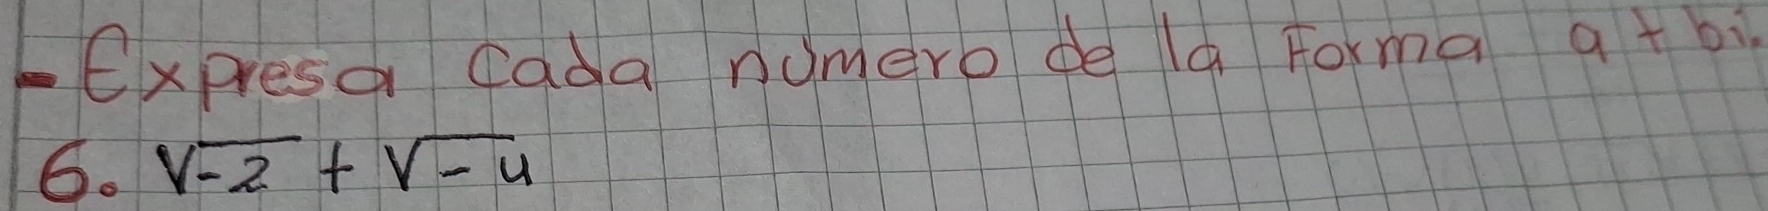 - Expresa cada número de la Forma a + bi.
6. √-2 + √-4